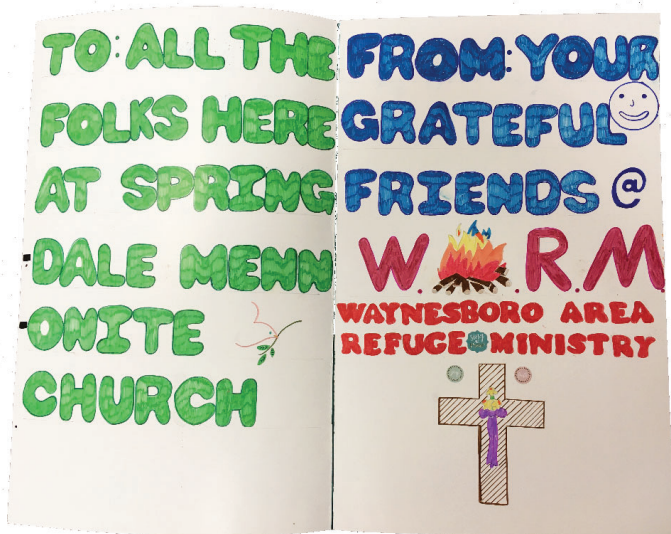 TO: ALL THE
FOLKS HERE
AT SPRING
DALE MENN
ONITE
CHURCH
FROM: YOUR
GRATEFUL
FRIENDS @
W. .R.M.
WAYNESBORO AREA
REFUGE MINISTRY